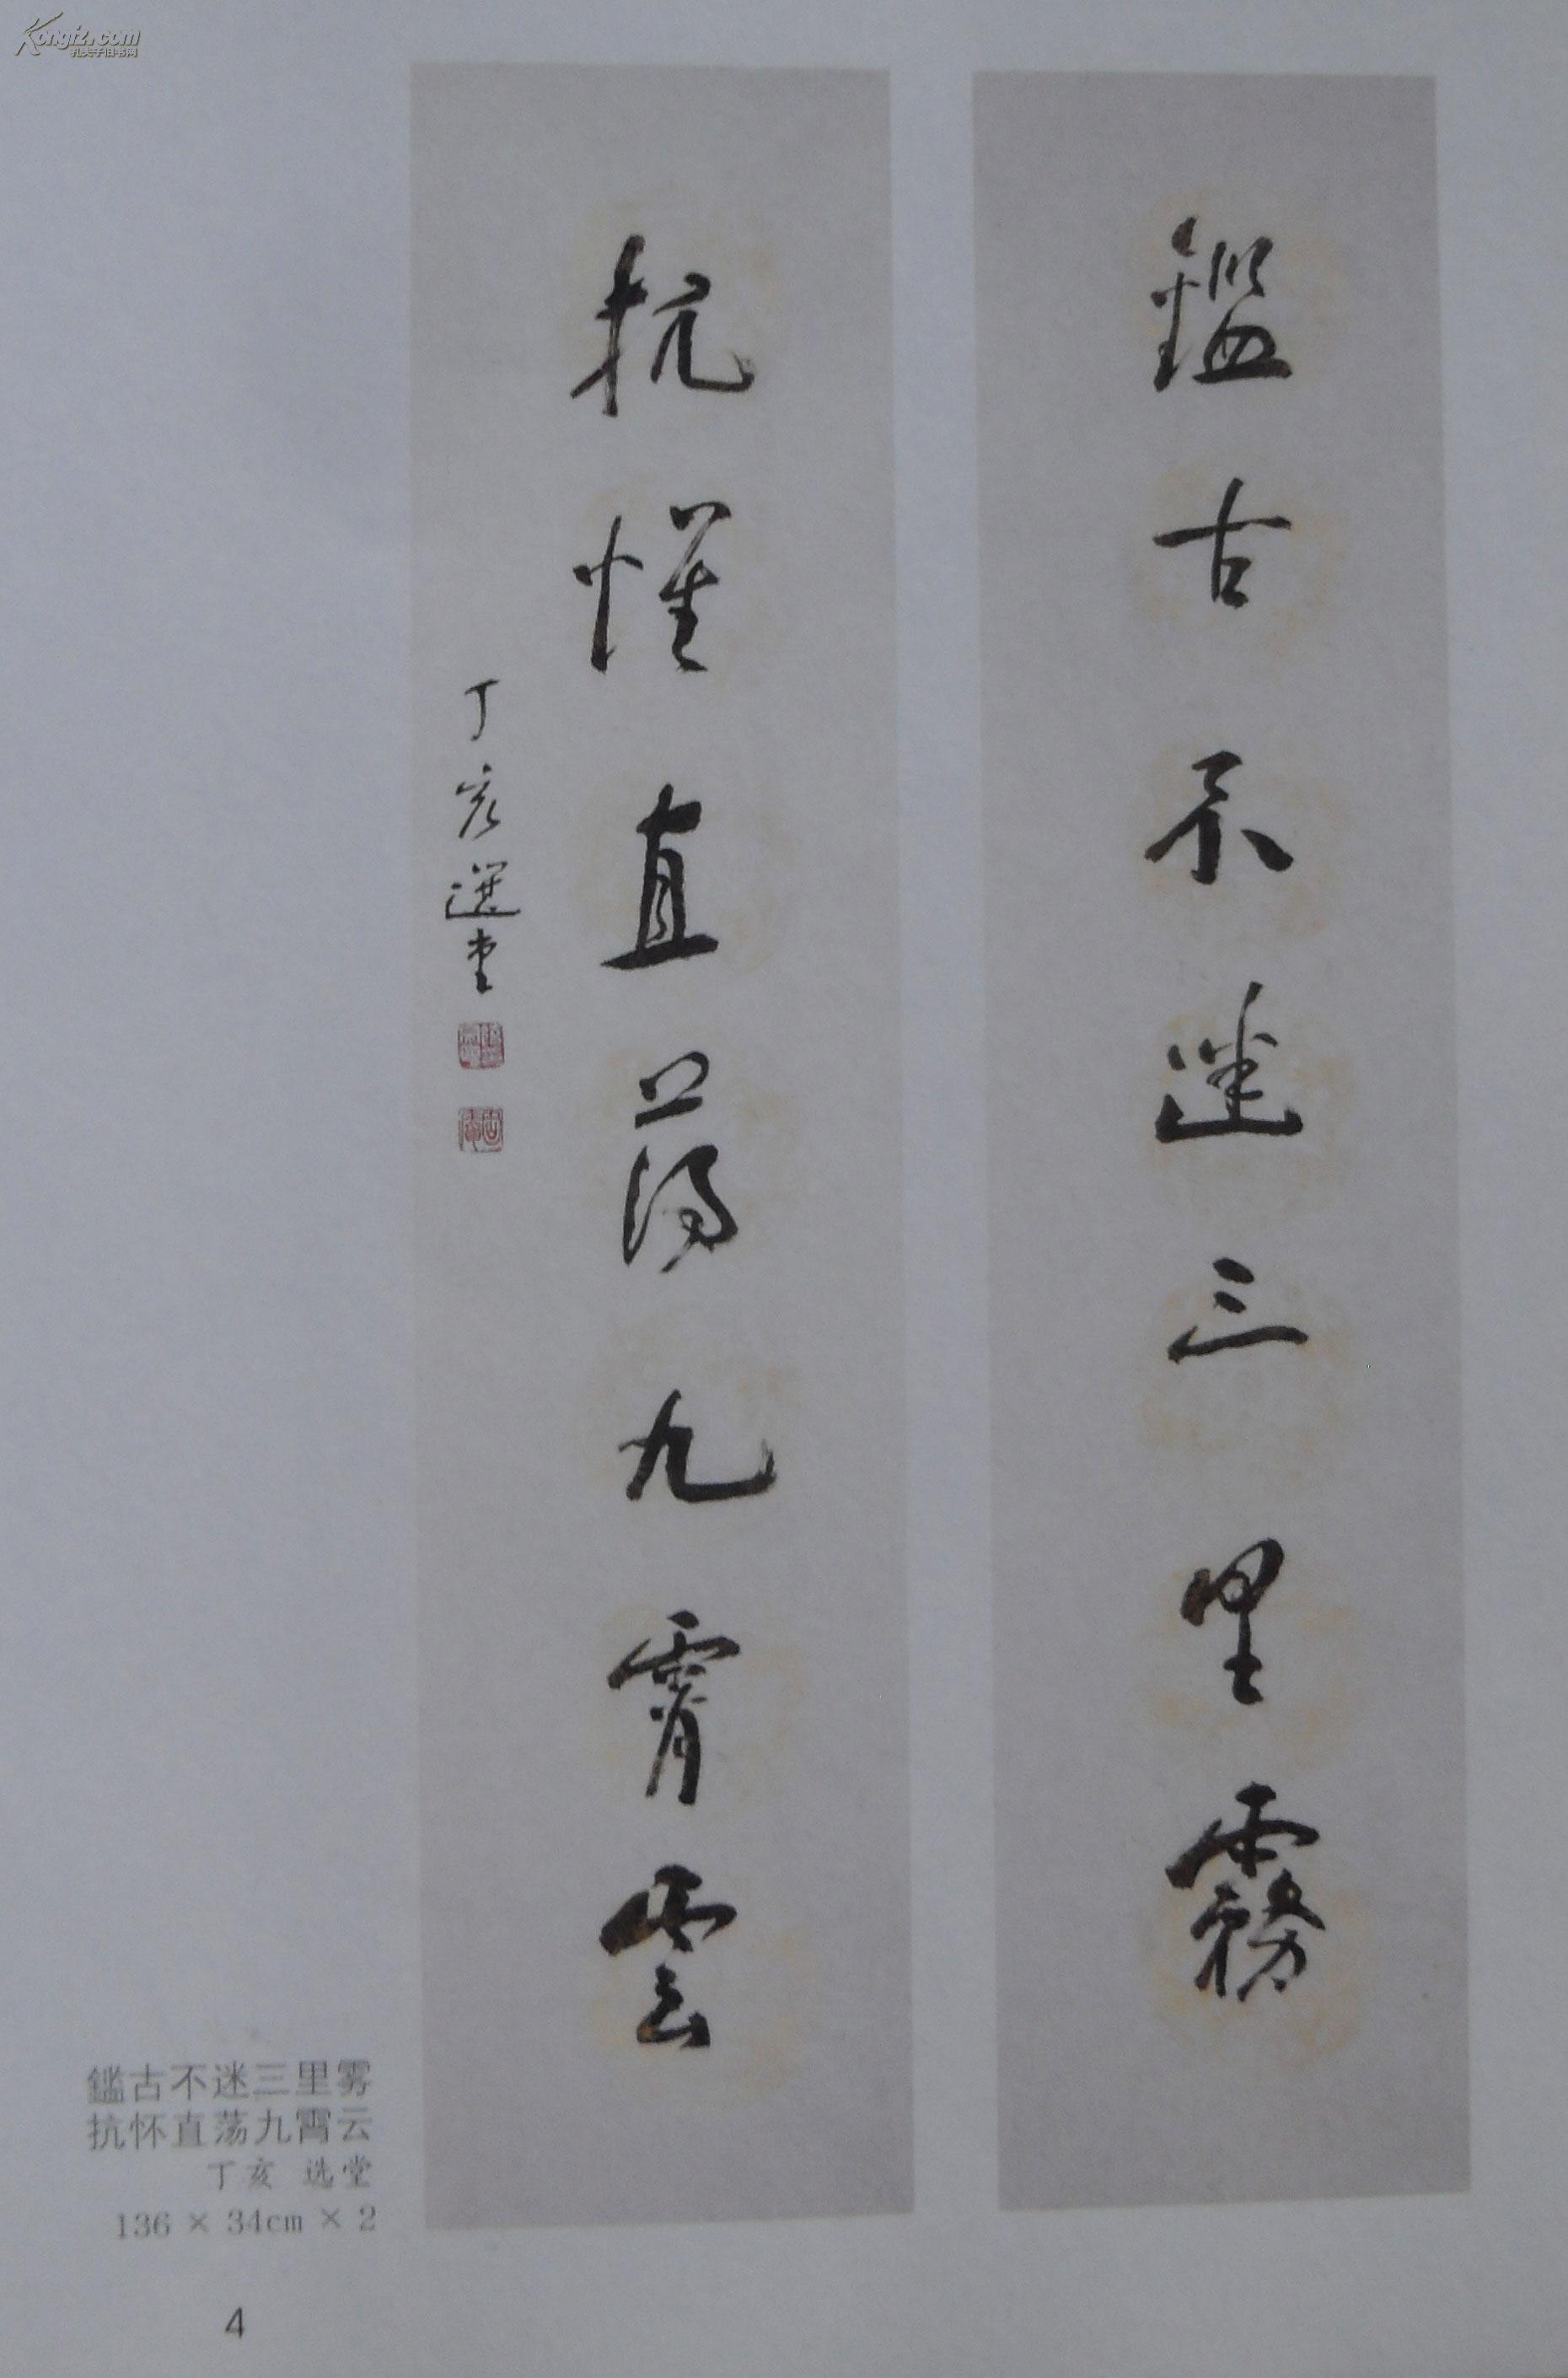 Kongfz.com
孔夫子旧书网
鑑古不迷三里霧
抗懷直蕩九霄雲
丁亥選堂
鑑古不迷三里雾
抗怀直荡九霄云
丁亥 选堂
136 × 34cm × 2
4